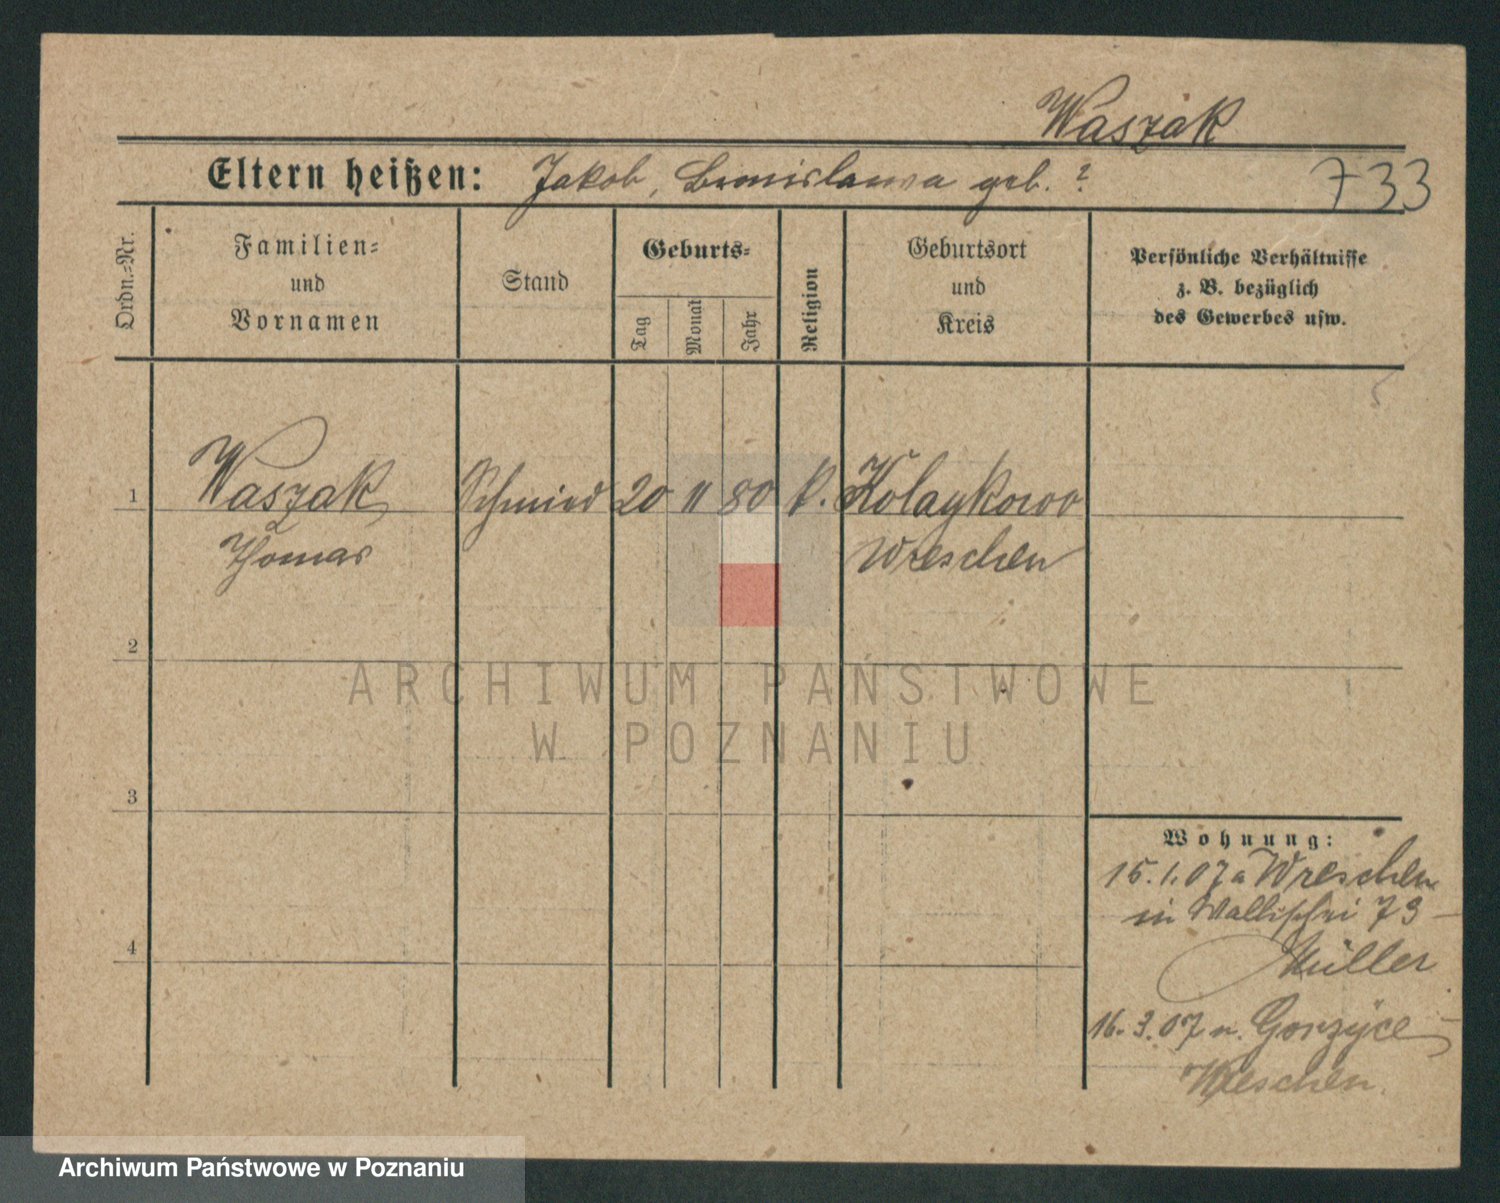 Waszak
Eltern heißen: Jakob, Bronislawa geb. ?
733
Ordn.-Nr.
Familien-
und
Vornamen
Stand
Geburts-
Tag
Monat
Jahr
Religion
Geburtsort
und
Kreis
Persönliche Verhältnisse
z. B. bezüglich
des Gewerbes usw.
1
Waszak Schmied 20 11 80 k.
Thomas
Wreschen
2
3
4
Wohnung:
15.1.07 a Wreschen
in Wallischei 73
Müller
16.3.07 n. Gorzyce
Wreschen.
ARCHIWUM PAŃSTWOWE
W POZNANIU
Archiwum Państwowe w Poznaniu